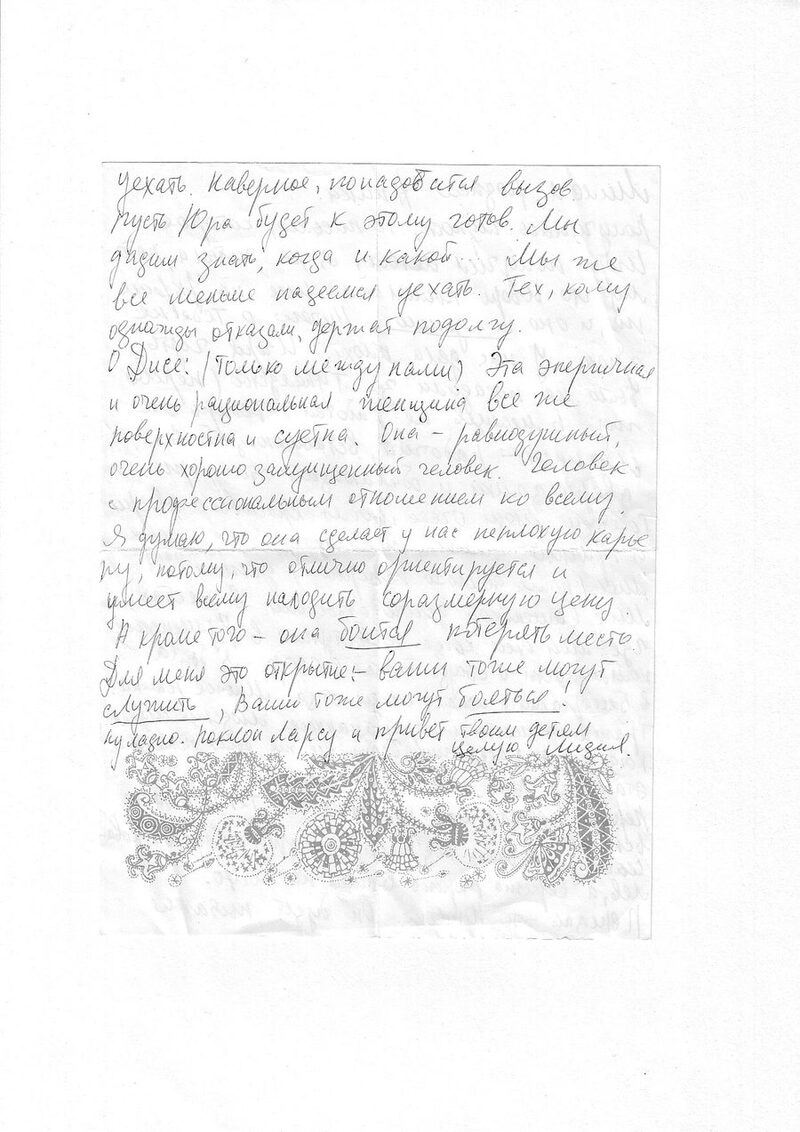 уехать. Наверное, понадобится вызов
пусть Юра будет к этому готов. Мы
дадим знать, когда и какой... Мы же
все меньше надеемся уехать. Тех, кому
однажды отказали, держат подолгу.
О Дисе: (только между нами) Эта энергичная
и очень рациональная женщина все же
поверхностна и суетна. Она – равнодушный,
очень хорошо защищенный человек. Человек
с профессиональным отношением ко всему.
Я думаю, что она сделает у нас неплохую карье
ру, потому, что отлично ориентируется и
умеет всему находить соразмерную цену.
А кроме того – она боится потерять место.
Для меня это открытие: – ваши тоже могут
служить, Ваши тоже могут бояться!
Ну ладно. Поклон Ларсу и привет твоим детям
Целую Лидия.